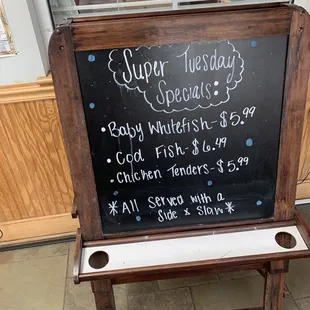 Super Tuesday
Specials:
• Baby Whitefish - $5.99
• Cod Fish - $6.49
• Chicken Tenders - $5.99
* All Served with a *
Side & Slaw